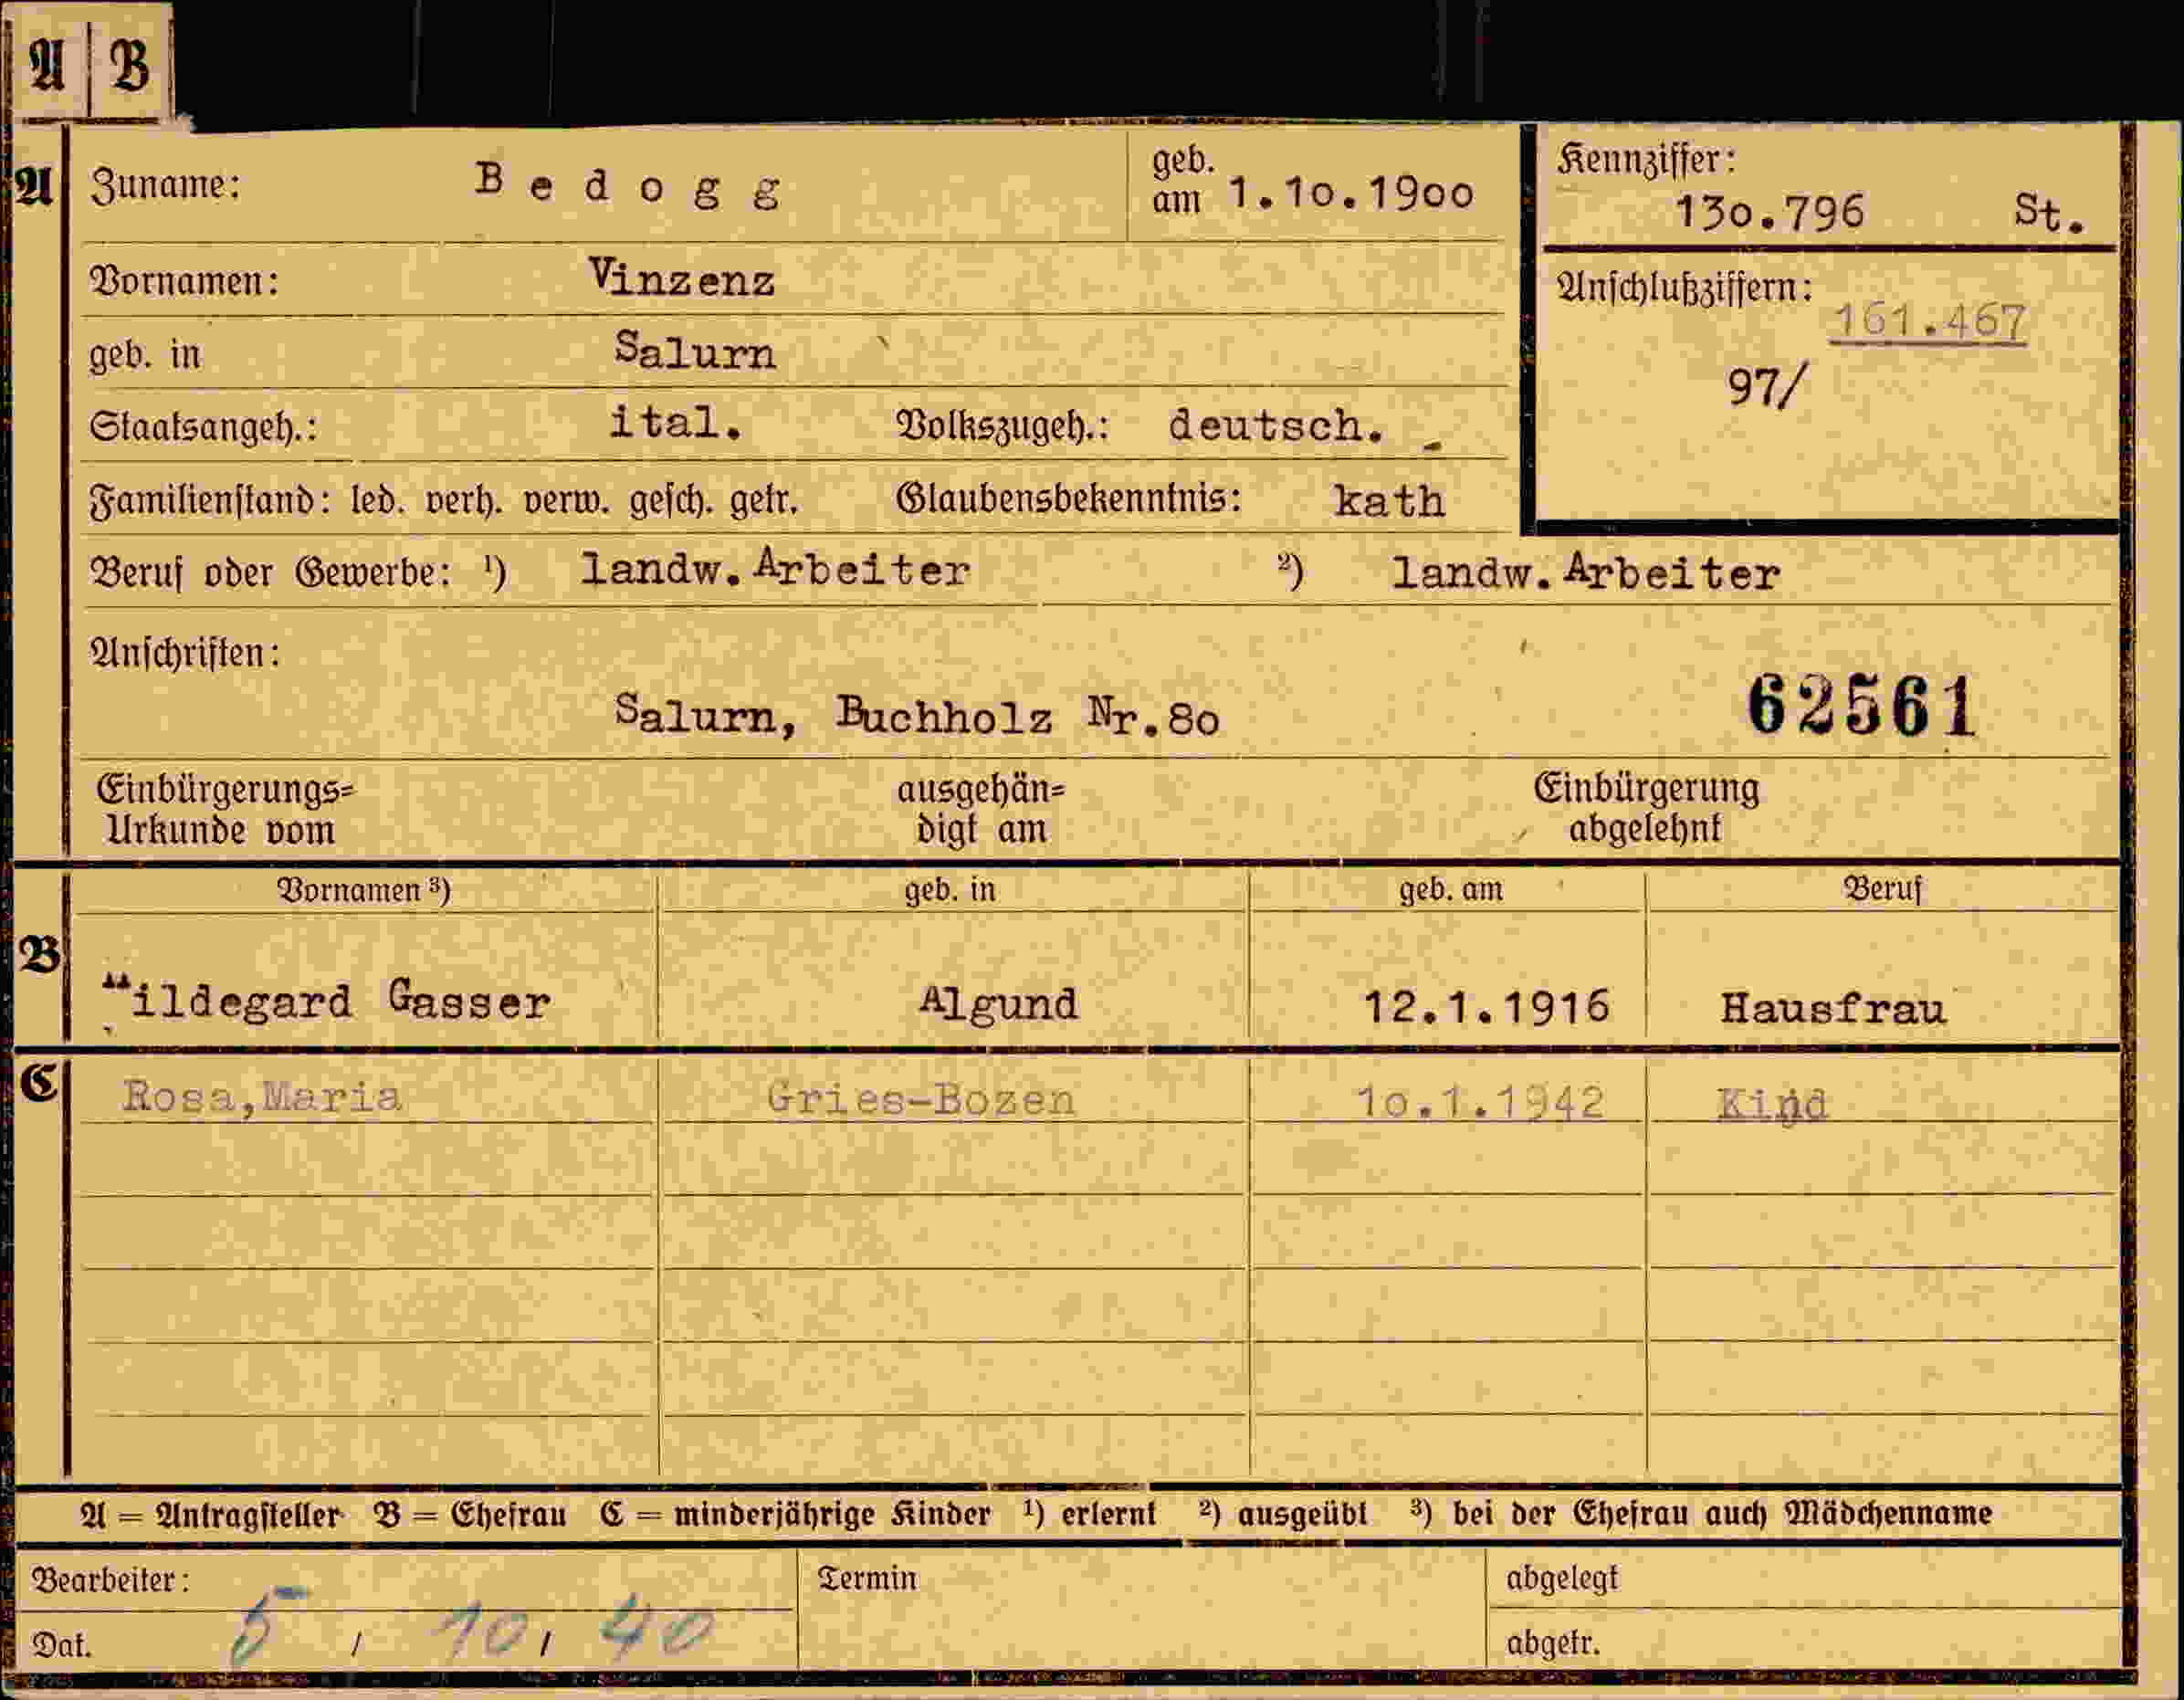 A B
A Zuname: Bedogg geb. am 1.10.1900 Kennziffer: 130.796 St.
Vornamen: Vinzenz Anschlußziffern: 161.467
geb. in Salurn 97/
Staatsangeh.: ital. Volkszugeh.: deutsch.
Familienstand: led. verh. verw. gesch. getr. Glaubensbekenntnis: kath
Beruf oder Gewerbe: ¹) landw. Arbeiter ²) landw. Arbeiter
Anschriften:
Salurn, Buchholz Nr.80 62561
Einbürgerungs= ausgehän= Einbürgerung
Urkunde vom digt am abgelehnt
B Vornamen ³) geb. in geb. am Beruf
Hildegard Gasser Algund 12.1.1916 Hausfrau
C Rosa, Maria Gries-Bozen 10.1.1942 Kind
A = Antragsteller B = Ehefrau C = minderjährige Kinder ¹) erlernt ²) ausgeübt ³) bei der Ehefrau auch Mädchenname
Bearbeiter: Termin abgelegt
Dat. 5 / 10 / 40 abgetr.